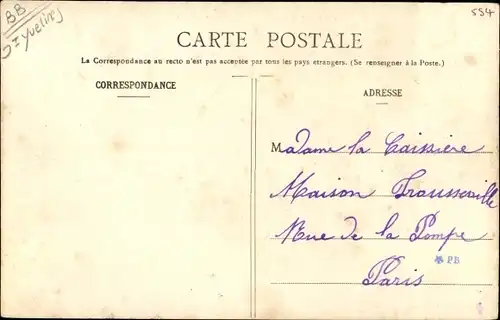 BB
Yvelines
554
CARTE POSTALE
La Correspondance au recto n'est pas acceptée par tous les pays étrangers. (Se renseigner à la Poste.)
CORRESPONDANCE
ADRESSE
Madame la Caissière
Maison
Rue de la Pompe
PB
Paris